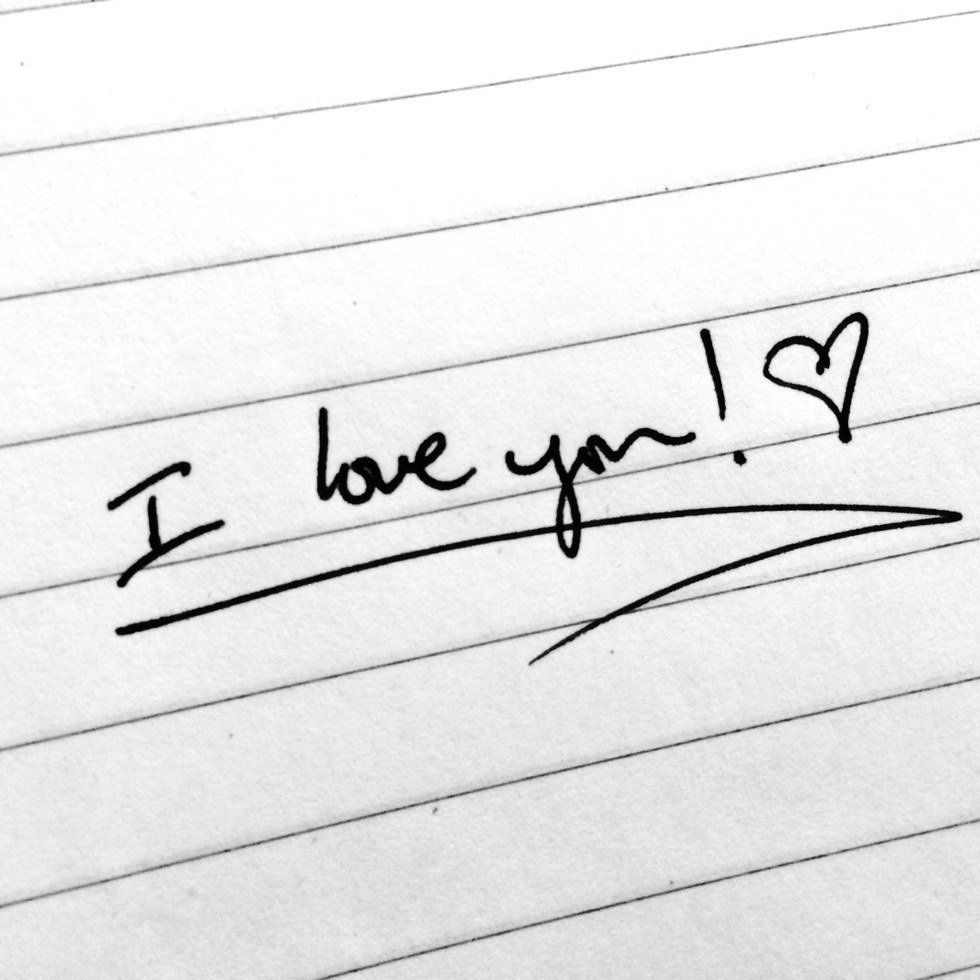 I love you! ♡